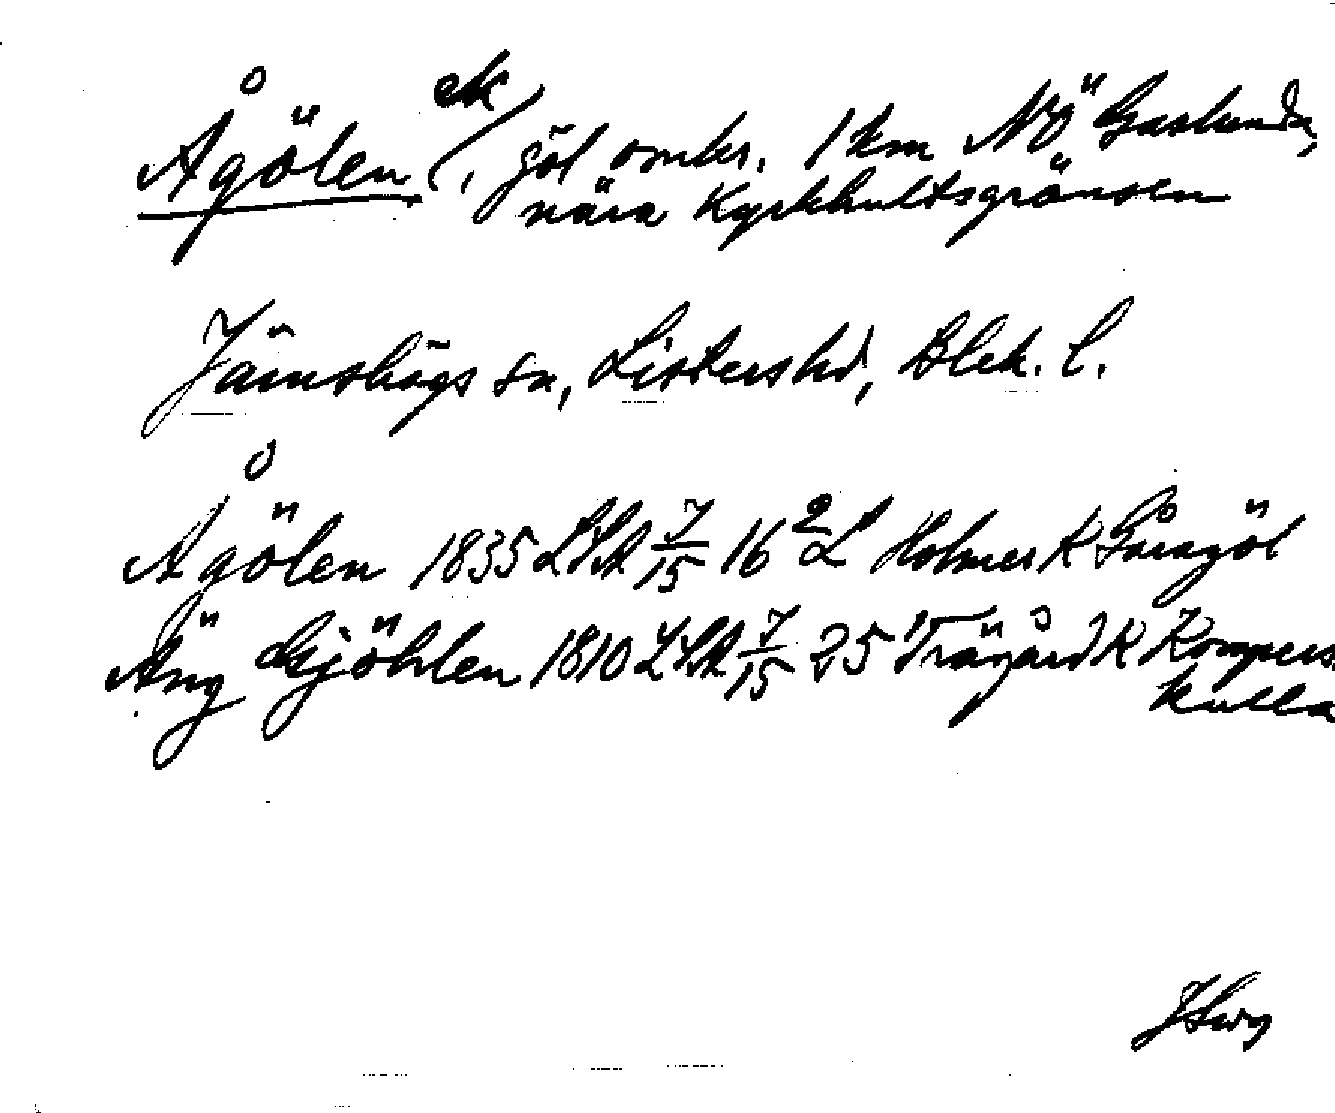 ek
Ågölen, göl omkr. 1 km NÖ Gaslunda,
nära Kyrkhultsgränsen
Jämshögs sn, Listers hd, Blek. l.
Ågölen 1835 LSA 7/15 16 2 L Holmer K Gåragöl
Äng Gjöhlen 1810 LSA 7/15 25 Trägård K Kompers
kulla